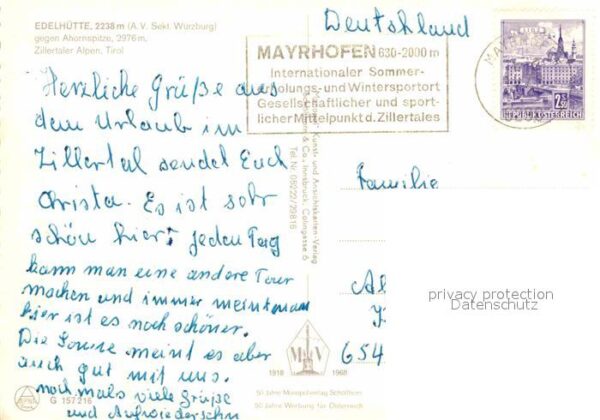 EDELHÜTTE, 2238 m (A.V. Sekt. Würzburg)
gegen Ahornspitze, 2976 m.
Zillertaler Alpen, Tirol
Herzliche Grüße aus
dem Urlaub im
Zillertal sendet Euch
Christa. Es ist sehr
schön hier, jeden Tag
kann man eine andere Tour
machen und immer meint man
hier ist es noch schöner.
Die Sonne meint es aber
auch gut mit uns.
noch mals viele Grüße
und Aufwiedersehn
G 157216
Deutschland
MAYRHOFEN 630-2000 m
Internationaler Sommer-
erholungs- und Wintersportort
Gesellschaftlicher und sport-
licher Mittelpunkt d. Zillertales
2.50
REPUBLIK ÖSTERREICH
Kunst- und Ansichtskarten-Verlag
& Co., Innsbruck, Colingasse 6
Tel. Nr. 05222/29815
Familie
Al
654
privacy protection
Datenschutz
1918 1968
50 Jahre Monopolverlag Schöllhorn
50 Jahre Werbung für Österreich